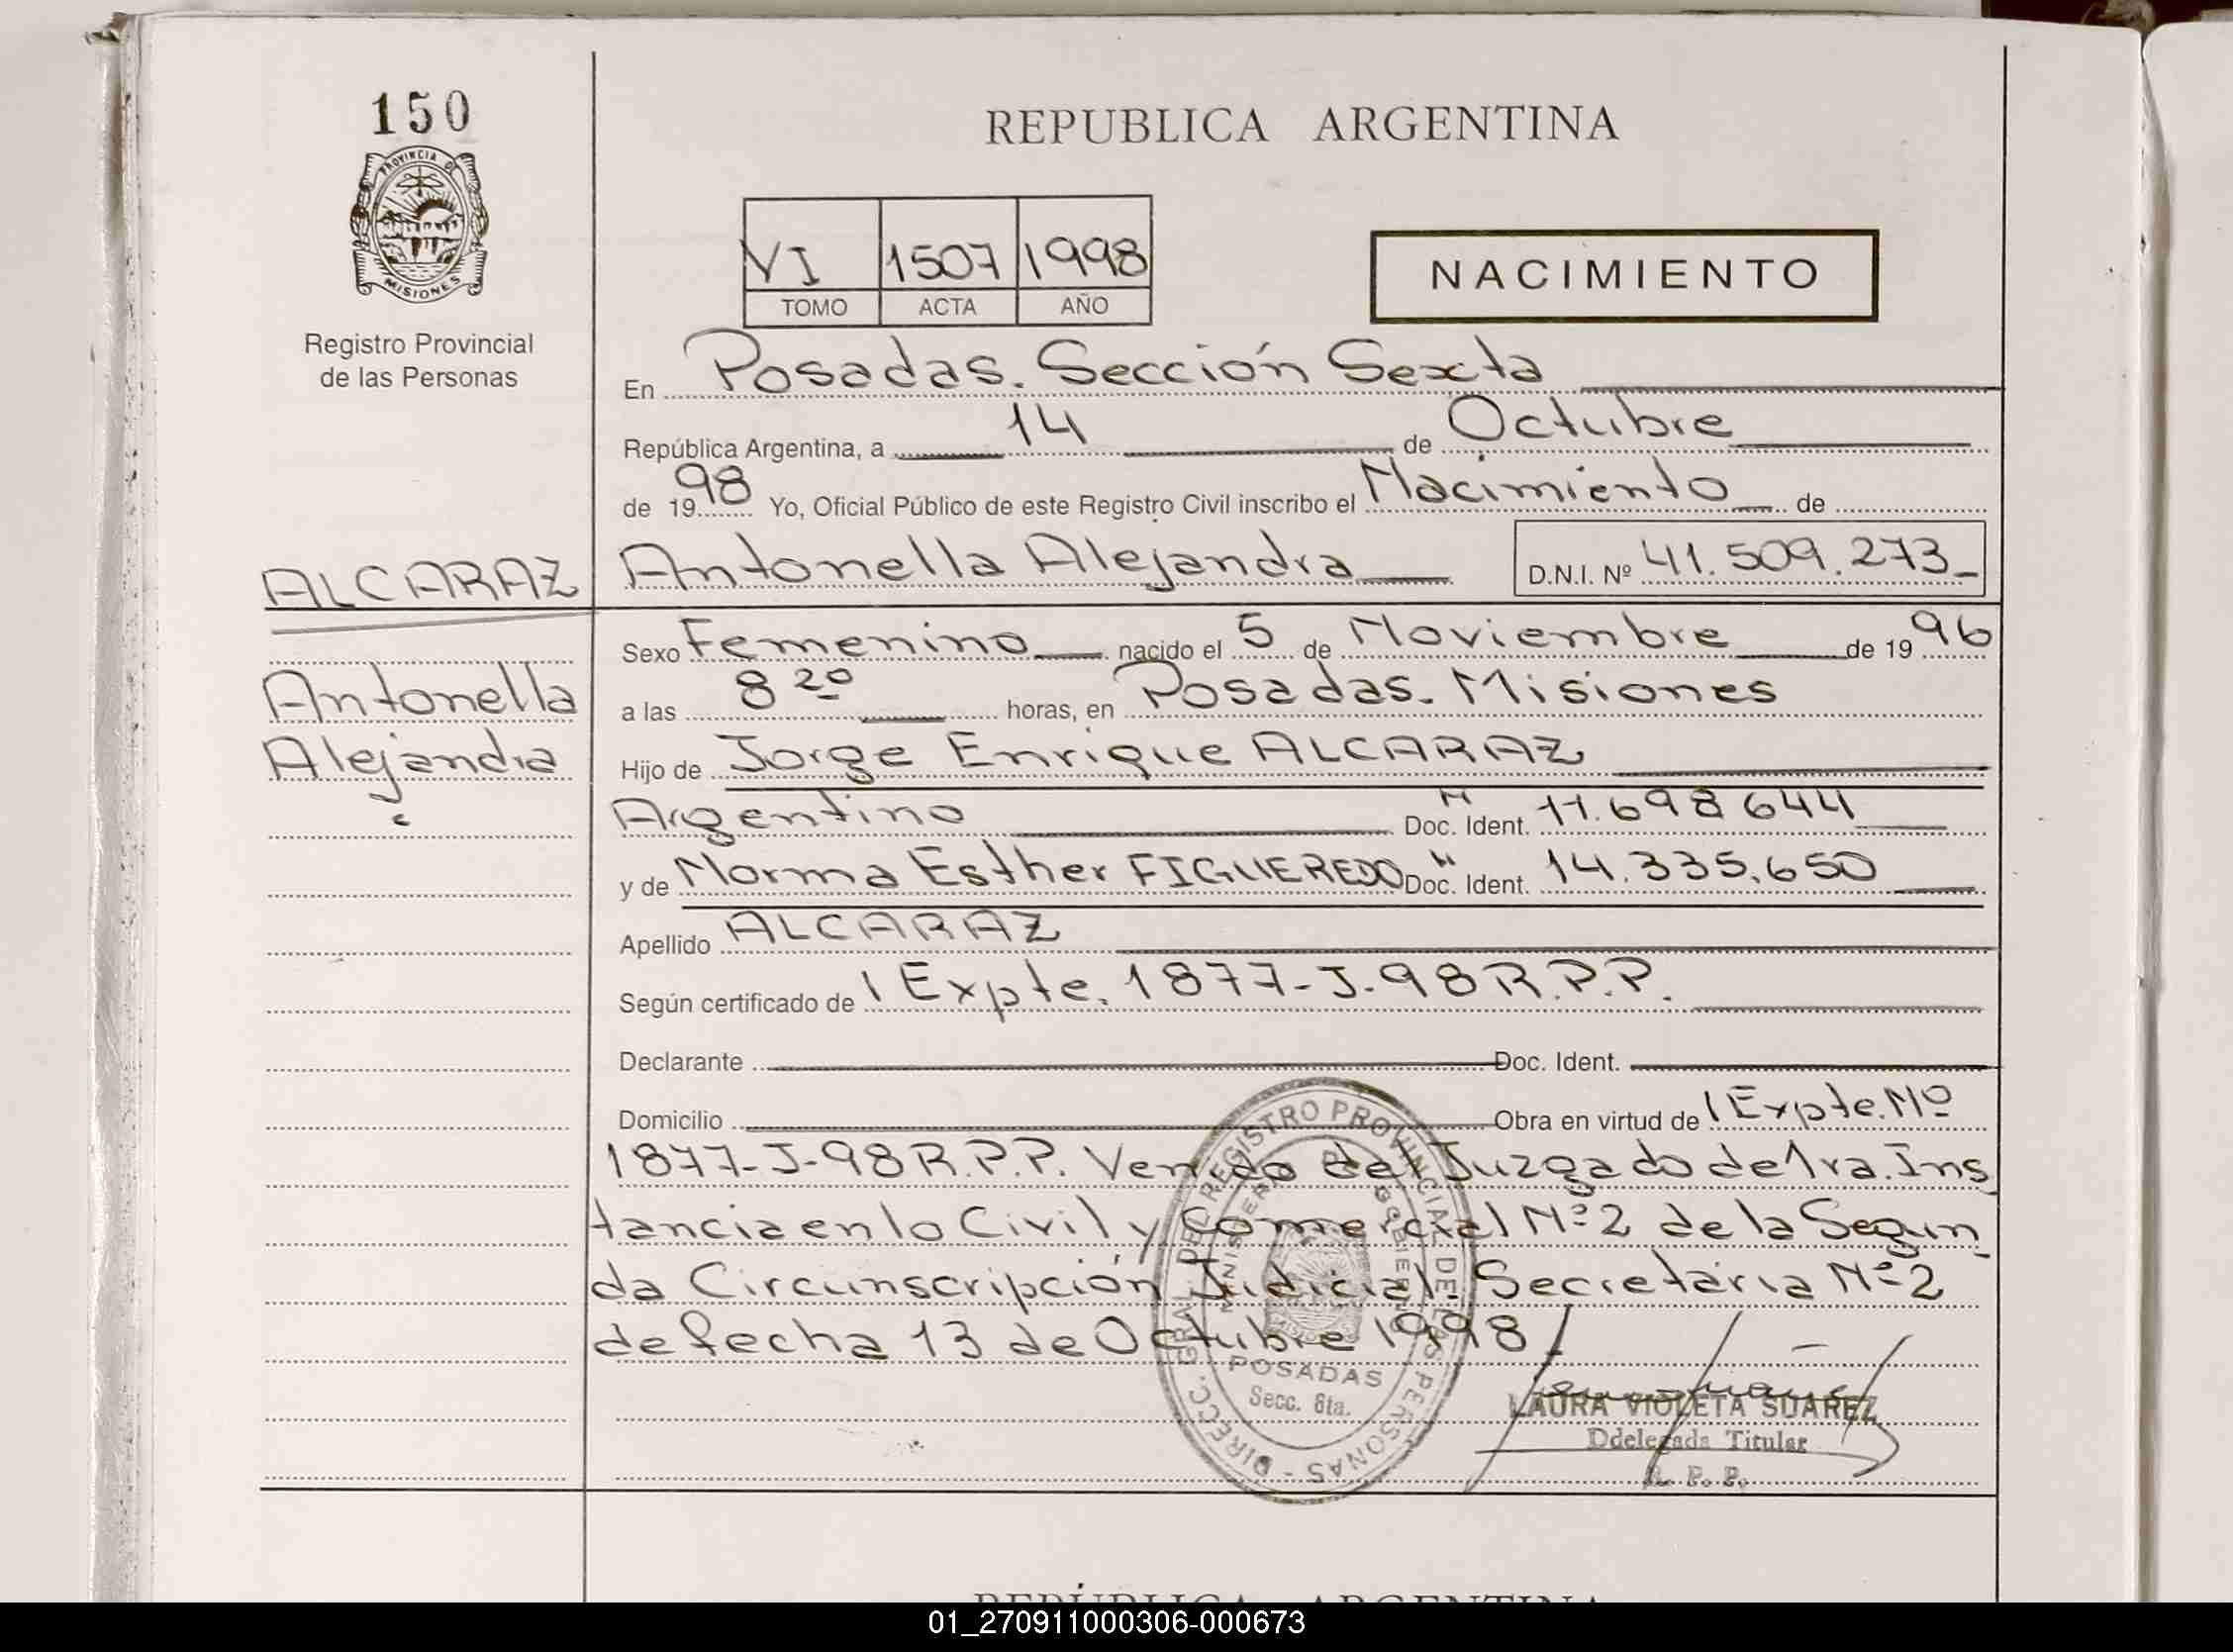 150
PROVINCIA DE
MISIONES
Registro Provincial
de las Personas
REPUBLICA ARGENTINA
VI 1507 1998
TOMO ACTA AÑO
NACIMIENTO
En Posadas. Sección Sexta
República Argentina, a 14 de Octubre
de 1998 Yo, Oficial Público de este Registro Civil inscribo el Nacimiento de
ALCARAZ Antonella Alejandra D.N.I. Nº 41.509.273
Sexo Femenino nacido el 5 de Noviembre de 1996
Antonella a las 8 20 horas, en Posadas. Misiones
Alejandra Hijo de Jorge Enrique ALCARAZ
Argentino Doc. Ident. 11.698644
y de Norma Esther FIGUEREDO Doc. Ident. 14.335.650
Apellido ALCARAZ
Según certificado de l Expte. 1877-J-98 R.P.P.
Declarante Doc. Ident.
Domicilio Obra en virtud de l Expte. Nº
1877-J-98 R.P.P. Venido del Juzgado de 1ra. Ins
tancia en lo Civil y Comercial Nº 2 de la Segun
da Circunscripción Judicial- Secretaria Nº 2
de fecha 13 de Octubre 1998
DIRECC. GRAL. DEL REGISTRO PROVINCIAL DE LAS PERSONAS -
MINISTERIO DE GOBIERNO
POSADAS
Secc. 6ta.
LAURA VIOLETA SUAREZ
Ddelegada Titular
R. P. P.
REPÚBLICA ARGENTINA
01_270911000306-000673